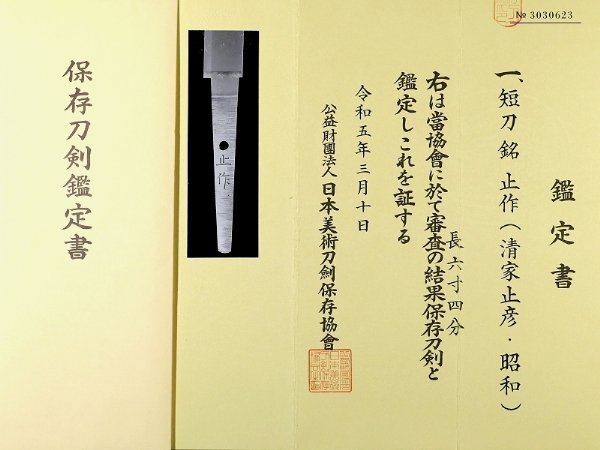 № 3030623
鑑定書
一、短刀 銘 止作(清家止彦・昭和)
長六寸四分
右は當協會に於て審査の結果保存刀剣と
鑑定しこれを証する
令和五年三月十日
公益財團法人 日本美術刀劍保存協會
止作
保存刀剣鑑定書